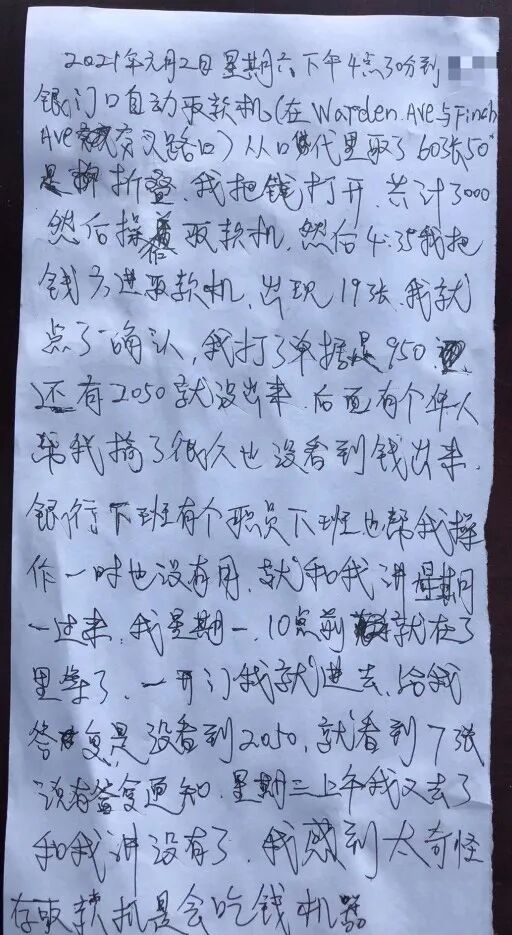 2021年元月2日星期六下午4点30分到
银门口自动取款机(在Warden.Ave与Finch
AVe 交叉路口)从口袋里取了60张50
是 折叠.我把钱打开.共计3000
然后操作取款机.然后4:35我把
钱放进取款机.出现19张.我就
点了确认,我打了单据是950
还有2050就没出来.后面有个华人
帮我搞了很久也没看到钱出来.
银行下班有个职员下班也帮我操
作一时也没有用.就和我讲星期
一过来.我星期一.10点前就在了
里等了.一开门我就进去.给我
答复是没看到2050.就看到7张
说有答复通知.星期三上午我又去了
和我讲没有了.我感到太奇怪
存取款机是会吃钱机器